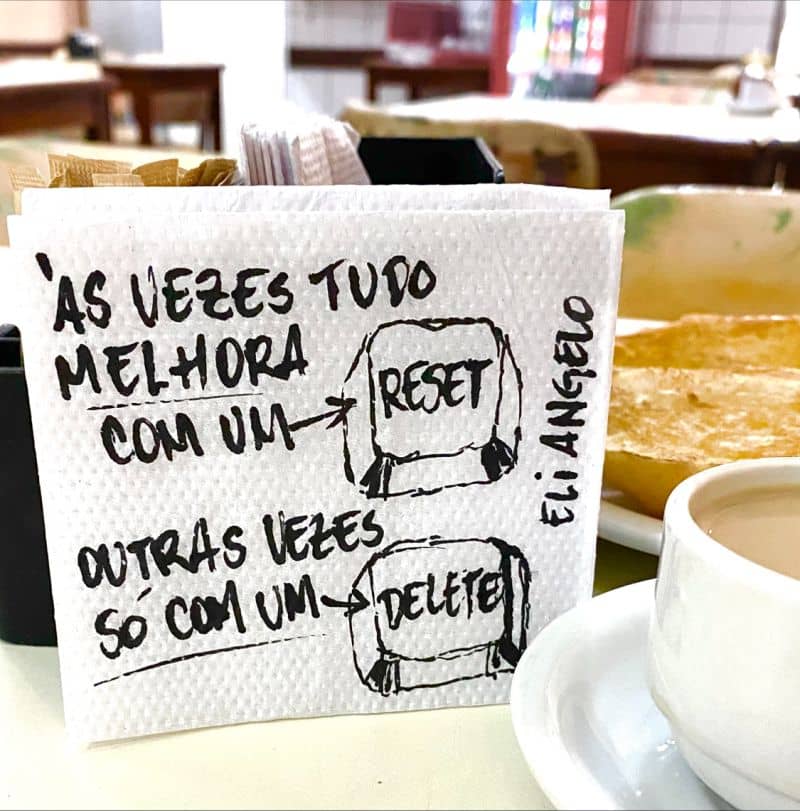 'AS VEZES TUDO
MELHORA
COM UM
RESET
OUTRAS VEZES
SÓ COM UM
DELETE
ELI ANGELO